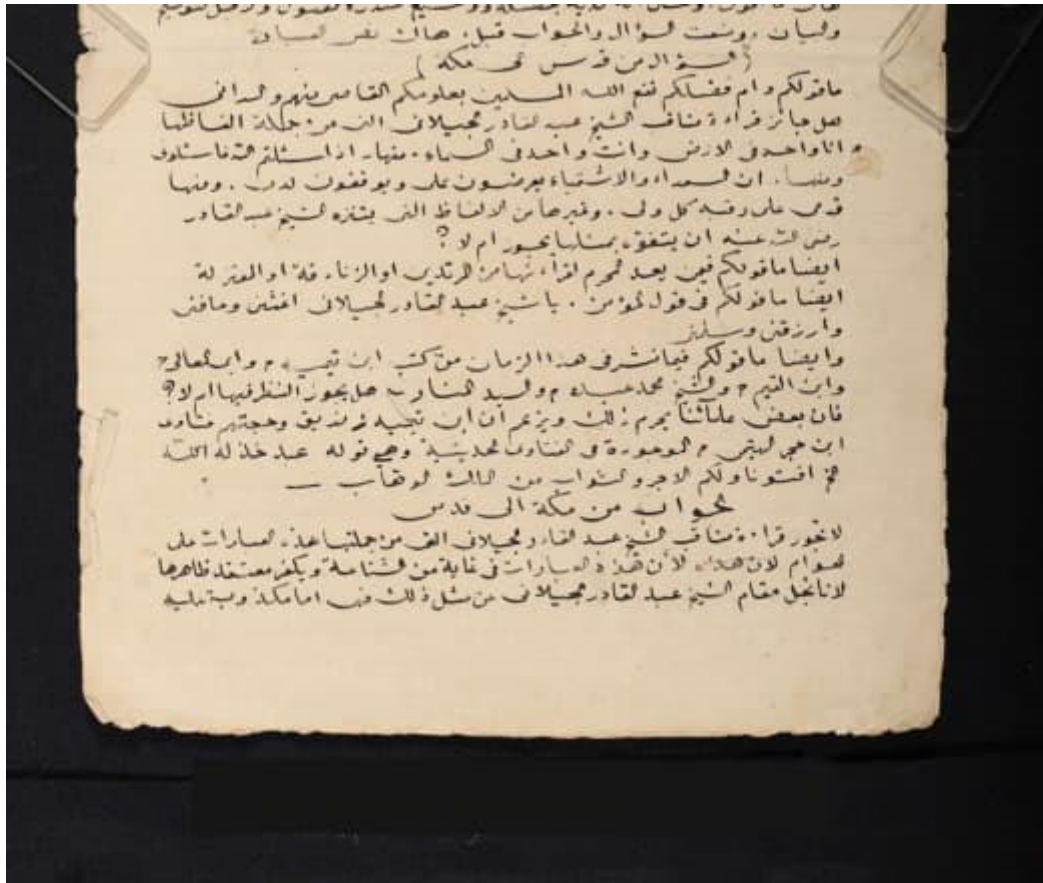 والبيان . وضعت السؤال والجواب قبل . هاك نص العبادة
(السؤال من قدس الى مكة)
ما قولكم دام فضلكم نفع الله المسلمين بعلومكم القاصى منهم والدانى
هل جائز قراءة مناقب الشيخ عبد القادر الجيلانى التى من جملة الفاظها
انا واحد فى الارض وانت واحد فى السماء . منها . اذا سئلتم الله فاسئلوه
ومنها . ان السعداء والاشقياء يعرضون على ويوقفون لدى . ومنها
قدمى على رقبة كل ولى . وغيرها من الالفاظ التى يتنزه الشيخ عبد القادر
رضى الله عنه ان يتفوه بمثلها يجوز ام لا ؟
ايضا ما قولكم فيمن يعد المحرم لقراءتها من المرتدين او الزنادقة او المعتزلة
ايضا ما قولكم فى قول المؤمن . يا شيخ عبد القادر الجيلانى اغثنى
وارزقنى
وايضا ما قولكم فيما نشر فى هذا الزمان من كتب ابن تيمية
وابن القيم م والشيخ محمد عبده م والسيد هل يجوز النظر فيها ام لا ؟
فان بعض علمائنا يحرم ذلك ويزعم ان ابن تيمية زنديق وحجتهم فتاوى
ابن حجر الهيتمى م الموجودة فى الفتاوى الحديثية وهى قوله عبد خذله الله
الخ افتونا ولكم الاجر والثواب من المالك الوهاب
الجواب من مكة الى قدس
لا تجوز قراءة مناقب الشيخ عبد القادر الجيلانى التى من جملتها هذه العبارات على
العوام لأن هذه العبارات فى غاية من الشناعة ويكفر معتقد ظاهرها
لانا نجل مقام الشيخ عبد القادر الجيلانى عن مثل ذلك فهى اما مكذوبة عليه